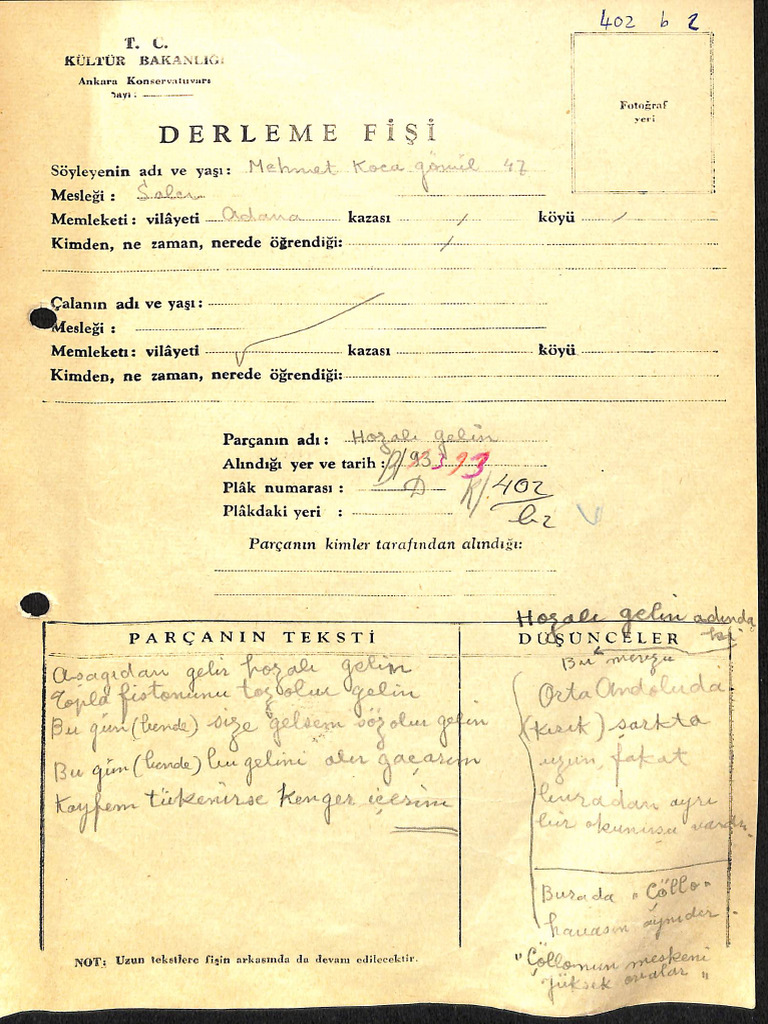 402 b 2
T. C.
KÜLTÜR BAKANLIĞI
Ankara Konservatuvarı
Sayı:
Fotoğraf
yeri
DERLEME FİŞİ
Söyleyenin adı ve yaşı: Mehmet Koca gömül 47
Mesleği:
Memleketi: vilâyeti Adana kazası / köyü /
Kimden, ne zaman, nerede öğrendiği: /
Çalanın adı ve yaşı:
Mesleği:
Memleketi: vilâyeti kazası köyü
Kimden, ne zaman, nerede öğrendiği:
Parçanın adı: Hozalı gelin
Alındığı yer ve tarih:
Plâk numarası: D 402
Plâkdaki yeri: b2
Parçanın kimler tarafından alındığı:
Hozalı gelin adında
ki
PARÇANIN TEKSTİ
Asagıdan gelir hozalı gelin
Topla fistonunu toz olur gelin
Bu gün (bende) size gelsem söz olur gelin
Bu gün (bende) bu gelini alır gaçarım
Kayfem tükenirse kenger içerim
DÜŞÜNCELER
Bu
Orta Andoluda
(kısık) şarkta
uzun, fakat
buradan ayrı
bir okunuşu vardır.
Burada "Çöllo"
havasın aynıdır.
"Çöllonun meskeni
yüksek ovalar"
NOT: Uzun tekstlere fişin arkasında da devam edilecektir.